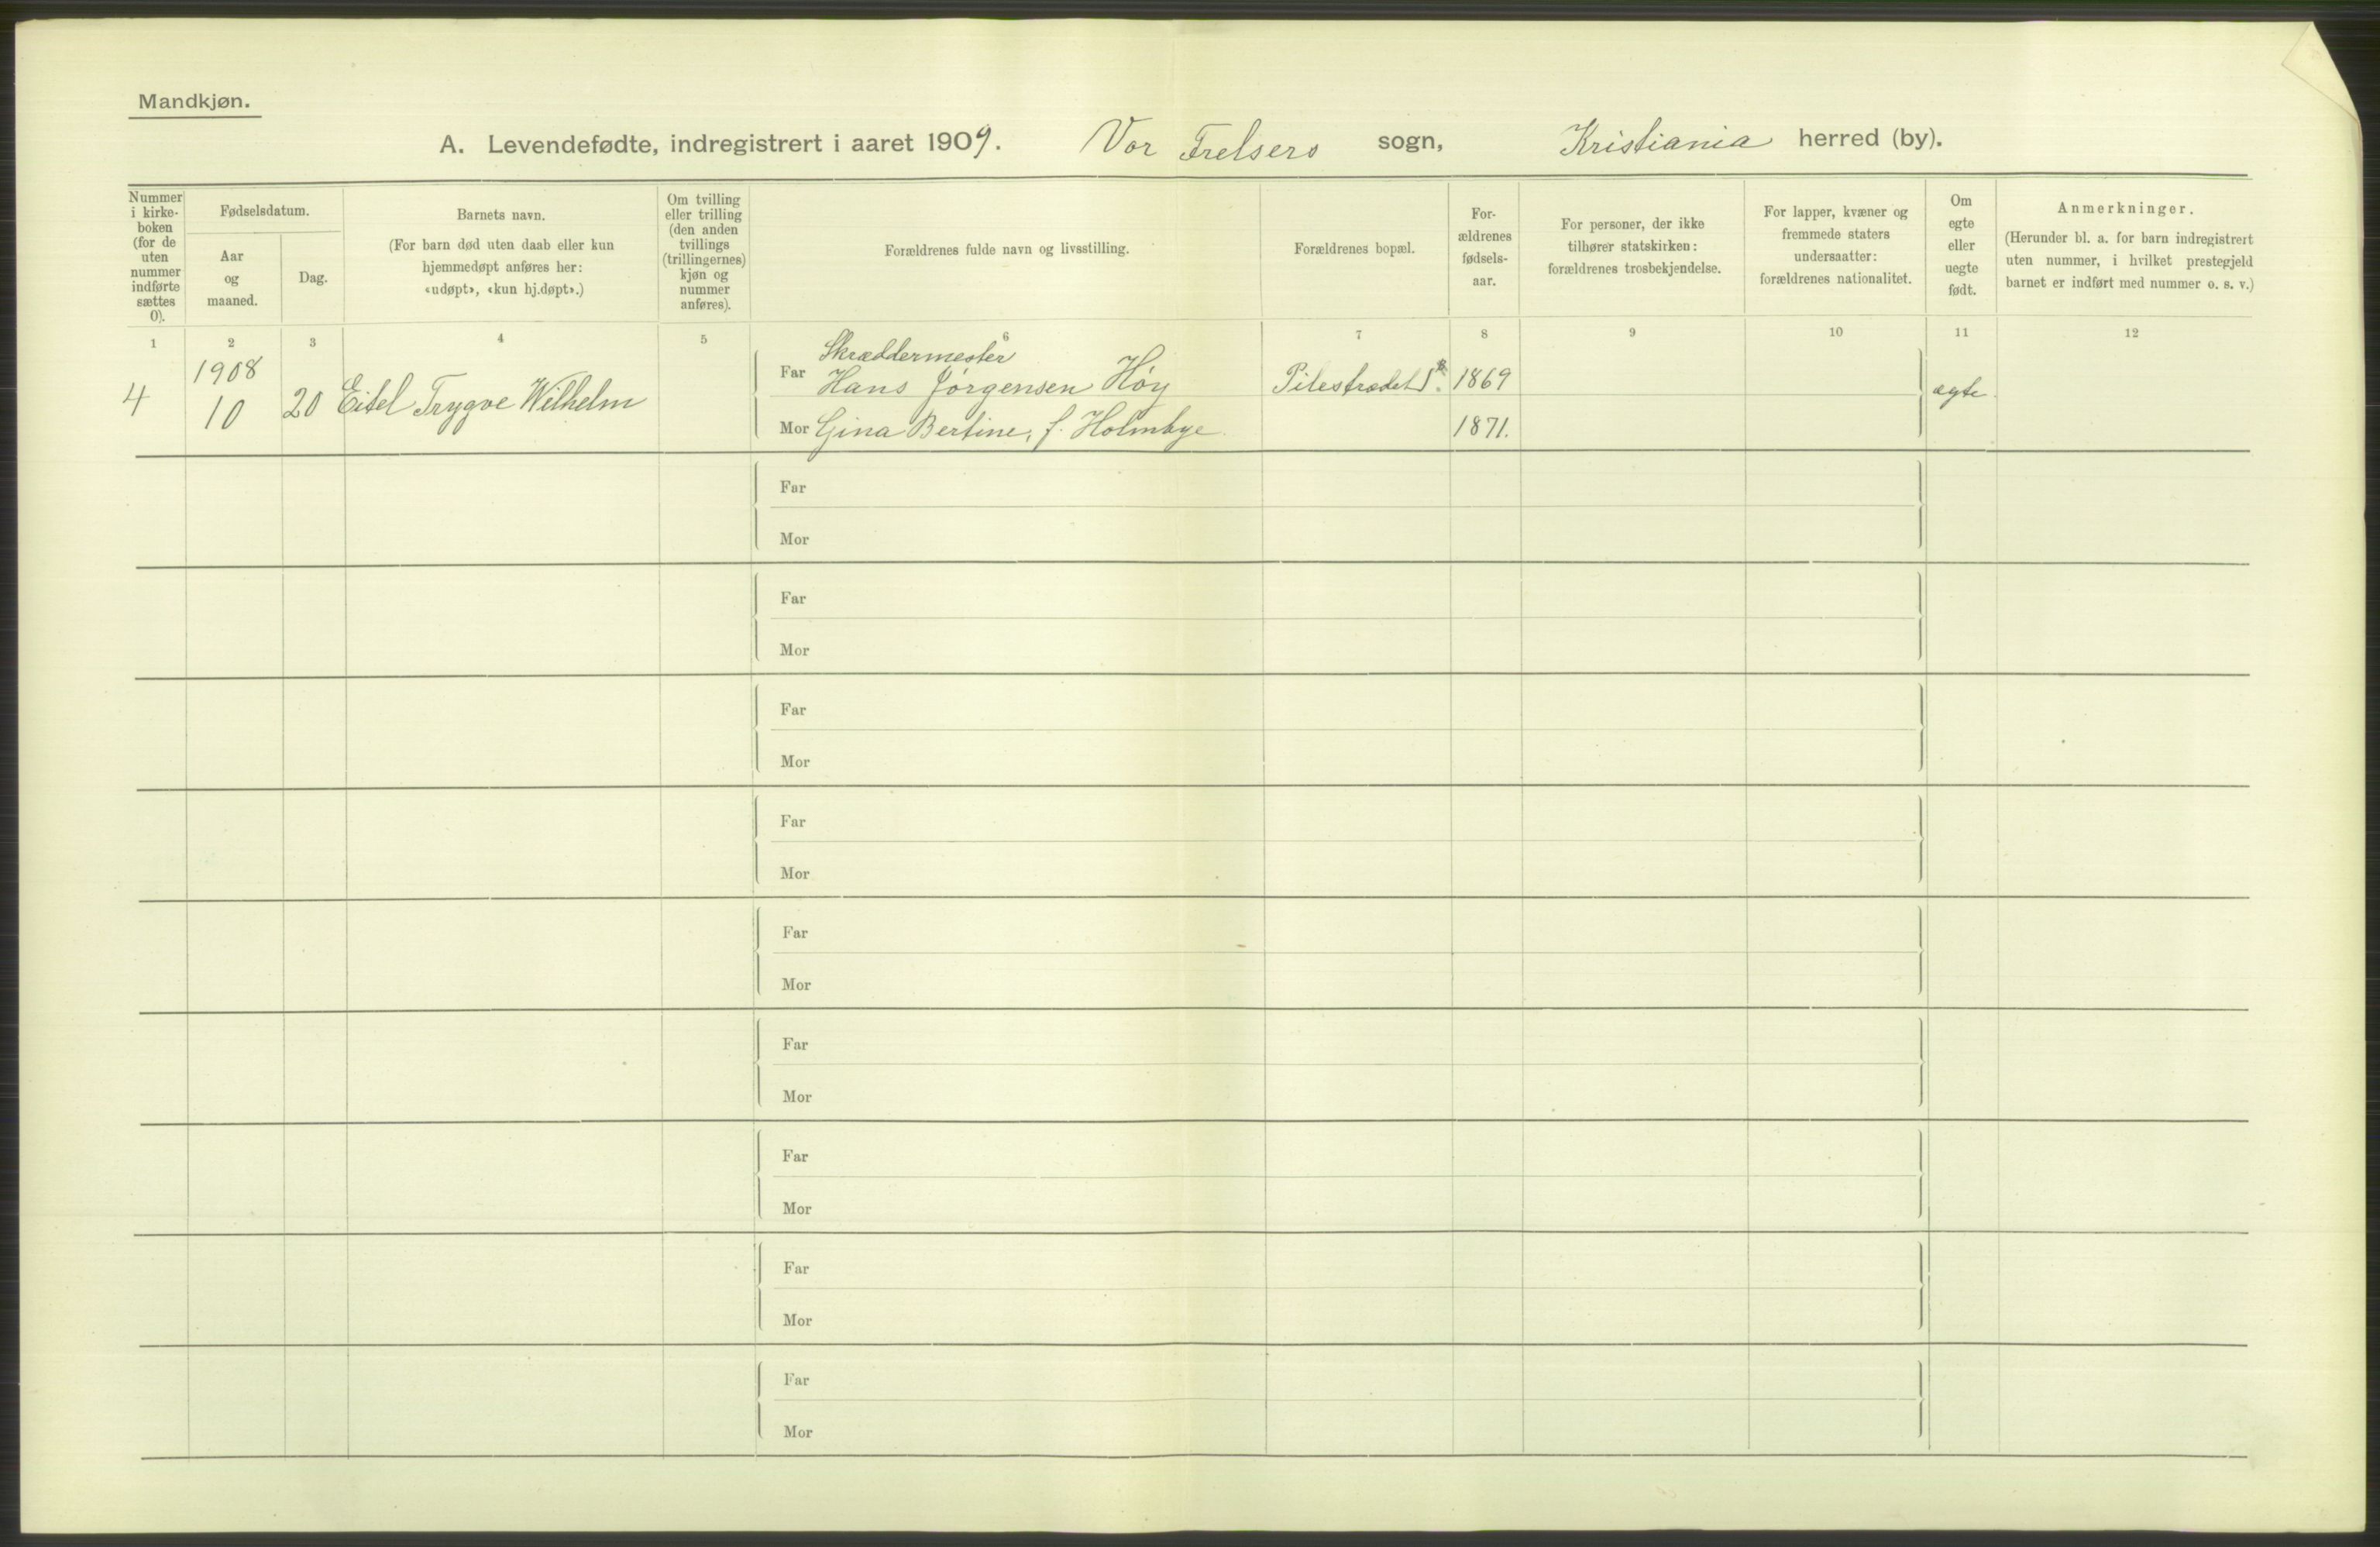 Mandkjøn.
A. Levendefødte, indregistrert i aaret 1909. Vor Frelsers sogn, Kristiania herred (by).
Nummer
i kirke-
boken
(for de
uten
nummer
indførte
sættes
0).
Fødselsdatum.
Aar
og
maaned.
Dag.
Barnets navn.
(For barn død uten daab eller kun
hjemmedøpt anføres her:
«udøpt», «kun hj.døpt».)
Om tvilling
eller trilling
(den anden
tvillings
(trillingernes)
kjøn og
nummer
anføres).
Forældrenes fulde navn og livsstilling.
Forældrenes bopæl.
For-
ældrenes
fødsels-
aar.
For personer, der ikke
tilhører statskirken:
forældrenes trosbekjendelse.
For lapper, kvæner og
fremmede staters
undersaatter:
forældrenes nationalitet.
Om
egte
eller
uegte
født.
Anmerkninger.
(Herunder bl. a. for barn indregistrert
uten nummer, i hvilket prestegjeld
barnet er indført med nummer o. s. v.)
1 2 3 4 5 6 7 8 9 10 11 12
4
1908
10
20
Eitel Trygve Wilhelm
Skræddermester
Far Hans Jørgensen Høy
Mor Gina Bertine, f. Holmbye.
Pilestrædet
1869
1871.
ægte.
Far
Mor
Far
Mor
Far
Mor
Far
Mor
Far
Mor
Far
Mor
Far
Mor
Far
Mor
Far
Mor